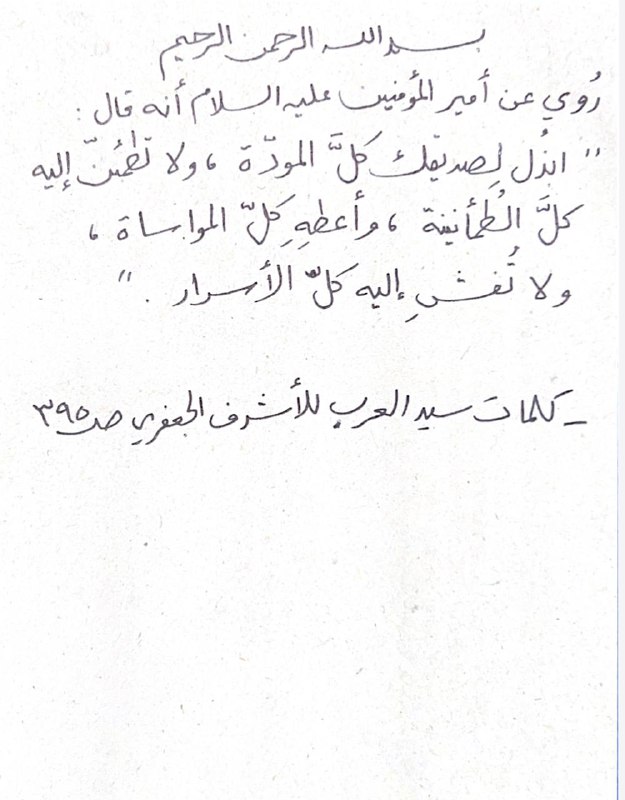 بسم الله الرحمن الرحيم
رُوي عن أمير المؤمنين عليه السلام أنه قال :
" ابذُل لِصديقك كلَّ المودّة ، ولا تطمئنّ إليه
كلَّ الطُمأنينة ، وأعطِهِ كلّ المواساة ،
ولا تُفشِ إليه كلّ الأسرار . "
_ كلمات سيد العرب للأشرف الجعفري صـ ٣٩٥